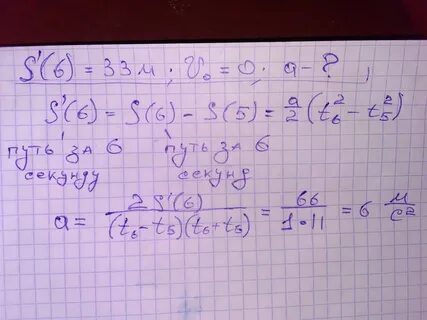 S'(6) = 33м ; V₀ = 0 ; a - ? ,
S'(6) = S(6) - S(5) = a/2 (t₆² - t₅²)
путь за 6 путь за 6
секунду секунд
a = 2 S'(6) / (t₆ - t₅)(t₆ + t₅) = 66 / 1·11 = 6 м/с²